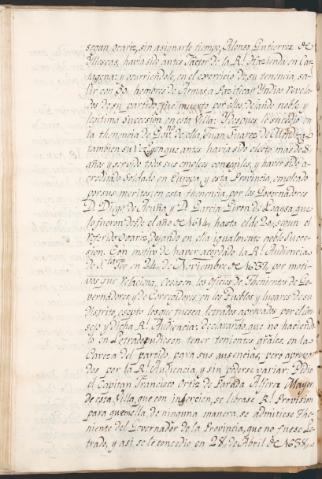 segun ocariz, sin asignarle tiempo, Alonso Gutierrez de
Illescas, havia sido antes Factor de la Rl. Hazienda en Car
thagena; y ocurriendole, en el exercicio de su tenencia, sa
lir con 30 hombres de Armas a Pacificar Yndios revela
dos de su partido, fue muerto por ellos, dejando noble, y
legitima Succesion, en esta Villa: Y despues le sucedio en
la thenencia de Govr. de ella, Juan Suarez de
tambien su Vezino, que antes havia sido electo mas de 8
años, y servido todos sus empleos concegiles, y haver sido a
creditado Soldado en Europa, y esta Provincia, empleado
por sus meritos, en esta thenencia, por los Governadores
D. Diego de Acuña, y D. Garcia Giron de Loaysa, que
lo fueron desde el año de 1614, hasta el de 20, segun el
referido ocariz, dejando en ella igualmente noble Succe
sion. Con motivo de haver acordado la Rl. Audiencia
de Sta. Fee en 24 de Noviembre de 1637, por moti
vos que relaciona, Cesasen los oficios de thenientes de Go
vernadores, y de Corregidores, en los Pueblos, y lugares de su
distrito, excepto los que fuesen letrados aprovados por el Con
sejo, y dicha Rl. Audiencia: declarando, que no havien
do en Letrado, pudiesen tener tenientes grales. en la
Cavesa del partido, para sus ausencias, pero aprova
dos por la Rl. Audiencia, y sin poderse variar: Pidio
el Capitan Francisco Ortiz de Parada Alferes Mayor
de esta Villa, que con insercion, se librase Rl. Provision
para que en ella de ninguna manera, se admitiese The
niente del Governador de la Provincia, que no fuese Le
trado, y asi se le concedio en 28 de Abril de 1638